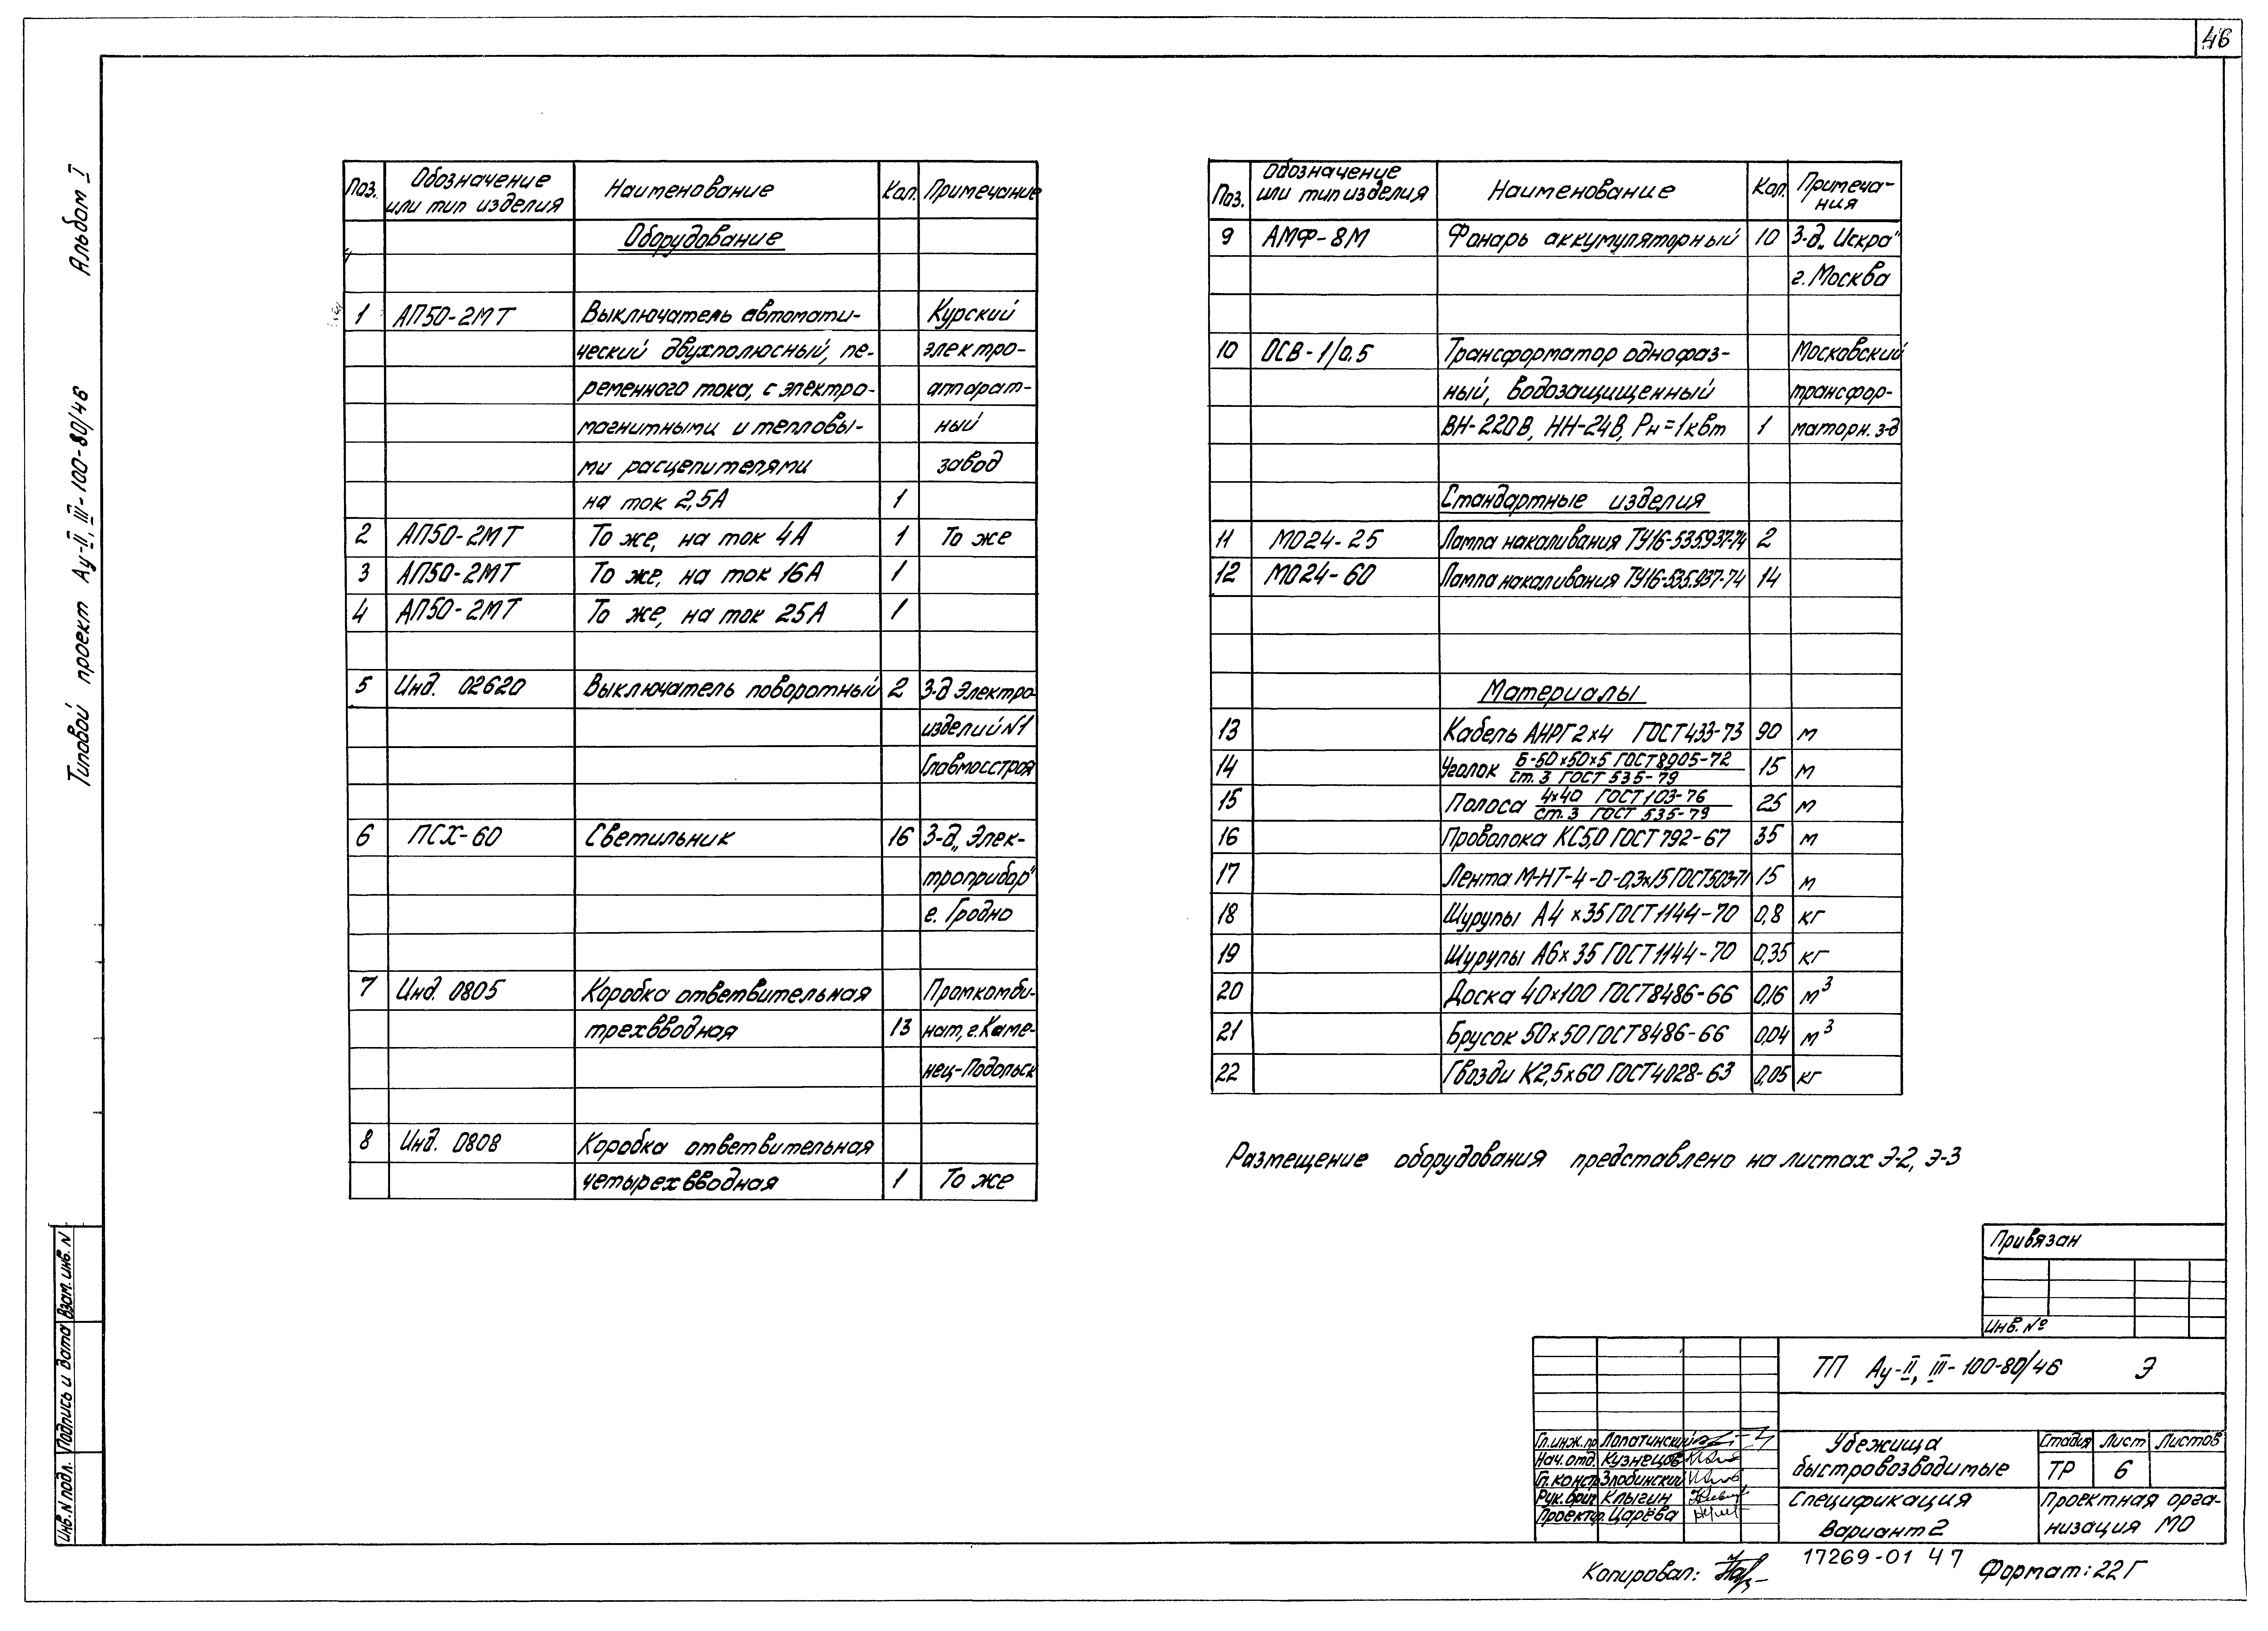 46
Альбом I
Типовой проект Ау-II, III-100-80/46
Поз. Обозначение или тип изделия Наименование Кол. Примечание
Оборудование
1 АП50-2МТ Выключатель автомати- Курский
ческий двухполюсный, пе- электро-
ременного тока, с электро- аппарат-
магнитными и тепловы- ный
ми расцепителями завод
на ток 2,5А 1
2 АП50-2МТ То же, на ток 4А 1 То же
3 АП50-2МТ То же, на ток 16А 1
4 АП50-2МТ То же, на ток 25А 1
5 Инд. 02620 Выключатель поворотный 2 З-д Электро
изделий N1
Главмосстроя
6 ПСХ-60 Светильник 16 З-д „Элек-
троприбор"
г. Гродно
7 Инд. 0805 Коробка ответвительная Промкомби-
трехвводная 13 нат, г. Каме-
нец-Подольск
8 Инд. 0808 Коробка ответвительная
четырехвводная 1 То же
Поз. Обозначение или тип изделия Наименование Кол. Примеча-ния
9 АМФ-8М Фонарь аккумуляторный 10 З-д „Искра"
г. Москва
10 ОСВ-1/0,5 Трансформатор однофаз- Московский
ный, водозащищенный трансфор-
ВН-220В, НН-24В, Рн=1квт 1 маторн. з-д
Стандартные изделия
11 МО24-25 Лампа накаливания ТУ16-535.937-74 2
12 МО24-60 Лампа накаливания ТУ16-535.937-74 14
Материалы
13 Кабель АНРГ 2х4 ГОСТ 433-73 90 м
14 Уголок Б-50х50х5 ГОСТ 8905-72 15 м
ст. 3 ГОСТ 535-79
15 Полоса 4х40 ГОСТ 103-76 25 м
ст. 3 ГОСТ 535-79
16 Проволока КС5,0 ГОСТ 792-67 35 м
17 Лента М-НТ-4-0-0,3х15 ГОСТ503-71 15 м
18 Шурупы А4х35 ГОСТ1144-70 0,8 кг
19 Шурупы А6х35 ГОСТ1144-70 0,35 кг
20 Доска 40х100 ГОСТ8486-66 0,16 м³
21 Брусок 50х50 ГОСТ8486-66 0,04 м³
22 Гвозди К2,5х60 ГОСТ4028-63 0,05 кг
Размещение оборудования представлено на листах Э-2, Э-3
Привязан
Инв. №
ТП Ау-II, III-100-80/46 Э
Гл. инж. пр Лопатинский
Нач. отд. Кузнецов
Гл. констр Злобинский
Рук. бриг Клыгин
Проектир. Царёва
Убежища
быстровозводимые
Стадия Лист Листов
ТР 6
Спецификация
Вариант 2
Проектная орга-
низация МО
Инв. N подл. Подпись и дата Взам. инв. N
Копировал:
17269-01 47
Формат: 22Г